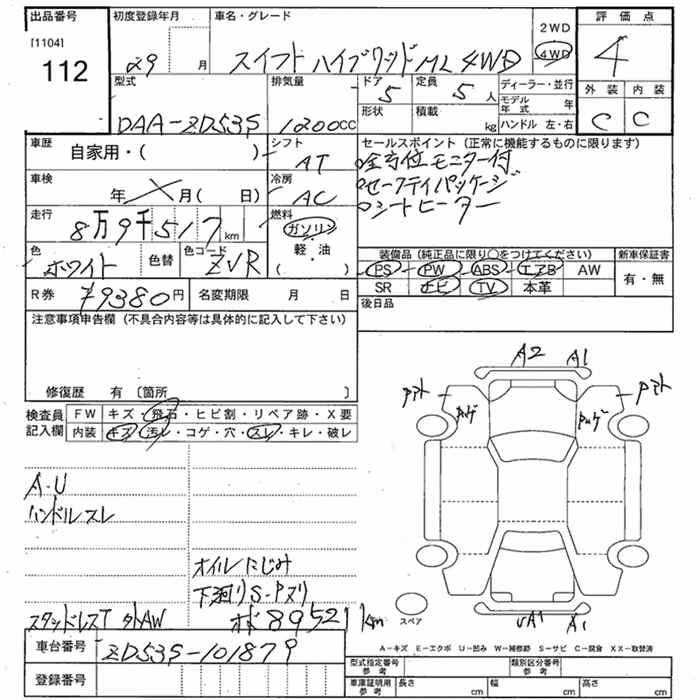 出品番号
[1104]
112
初度登録年月
29 月
車名・グレード
スイフト ハイブリッド ML 4WD
2WD
4WD
評価点
4
外装 内装
C C
型式
DAA-ZD53S
排気量
1200cc
ドア
5
形状
定員
5人
積載
kg
ディーラー・並行
モデル年式 年
ハンドル 左・右
車歴
自家用・( )
シフト
AT
セールスポイント (正常に機能するものに限ります)
全方位モニター付
セーフティパッケージ
シートヒーター
車検
年 月( 日)
冷房
AC
走行
8万9千517km
燃料
ガソリン
・
軽・油
( )
色
ホワイト
色替
色コード
ZVR
装備品 (純正品に限り○をつけてください)
PS PW ABS エアB AW
SR ナビ TV 本革
新車保証書
有・無
R券
¥9380円
名変期限 月 日
後日品
注意事項申告欄 (不具合内容等は具体的に記入して下さい)
修復歴 有 〔箇所 〕
検査員記入欄
FW キズ・飛石・ヒビ割・リペア跡・X要
内装 キズ・汚レ・コゲ・穴・スレ・キレ・破レ
A2 A1
A・U
ハンドルスレ
オイルにじみ
下廻りS・Pヌリ
スタッドレスT 外AW
89521km
スペア
A1
車台番号
ZD53S-101879
登録番号
A-キズ E-エクボ U-凹み W-補修跡 S-サビ C-腐食 XX-取替済
型式指定番号
参考
類別区分番号
参考
車庫証明用
参考
長さ cm
幅 cm
高さ cm